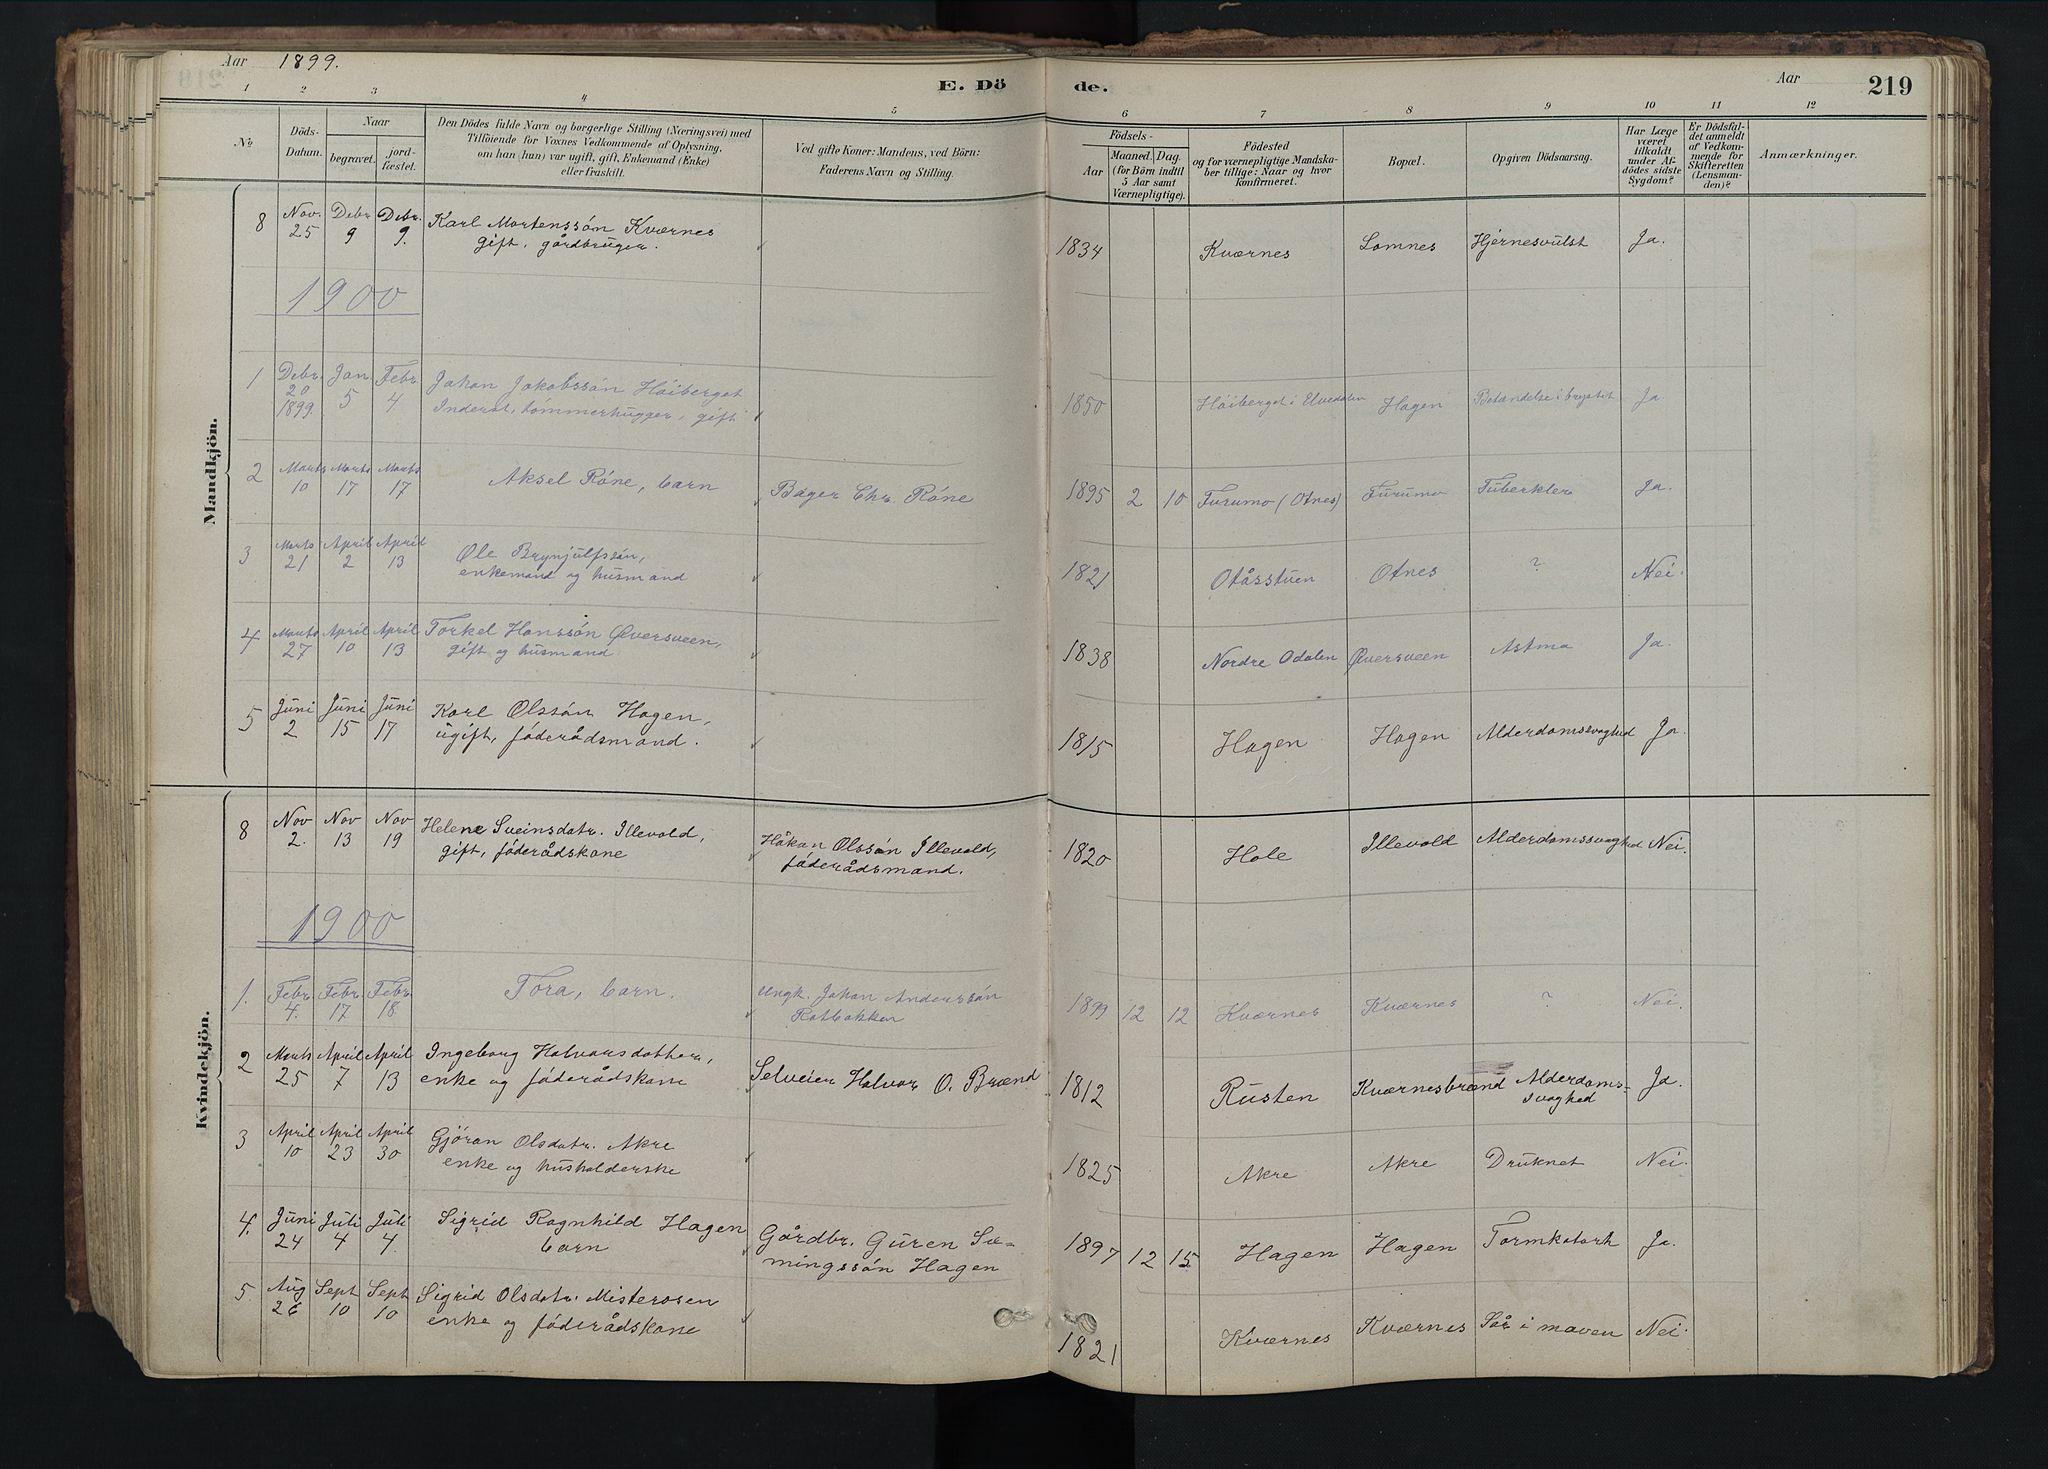 Aar 1899.
E. Dö de.
Aar 219
1 2 3 4 5 6 7 8 9 10 11 12
No.
Döds-Datum.
Naar
begravet.
jordfæstet.
Den Dödes fulde Navn og borgerlige Stilling (Næringsvei) med
Tilföiende for Voxnes Vedkommende af Oplysning,
om han (hun) var ugift, gift, Enkemand (Enke)
eller fraskilt.
Ved gifte Koner: Mandens, ved Börn:
Faderens Navn og Stilling.
Födsels-
Aar
Maaned. Dag.
(for Börn indtil
5 Aar samt
Værnepligtige).
Födested
og for værnepligtige Mandskaber tillige: Naar og hvor
konfirmeret.
Bopæl.
Opgiven Dödsaarsag.
Har Læge
været
tilkaldt
under Afdödes sidste
Sygdom?
Er Dödsfaldet anmeldt
af Vedkommende for
Skifteretten
(Lensmanden)?
Anmærkninger.
Mandkjön.
8 Nov. 25 Debr 9 Debr. 9. Karl Mortenssón Kværnes
gift, gårdbruger.
1834 Kværnes Lomnes Hjernesvulst Ja.
1900
1 Debr. 20 1899. Jan. 5 Febr. 4 Johan Jakobssón Hóiberget
Inderst, tómmerhugger, gift
1850 Hóiberget i Elvedalen Hagen Betændelse i brystet Ja
2 Marts 10 Marts 17 Marts 17 Aksel Róne, barn
Bager Chr. Róne
1895 2 10 Furumo (Otnes) Furumo Tuberkler Ja.
3 Marts 21 April 2 April 13 Ole Brynjulfssón,
enkemand og husmand
1821 Otåsstuen Otnes ? Nei.
4 Marts 27 April 10 April 13 Torkel Hanssón Øversveen,
gift og husmand
1838 Nordre Odalen Øversveen Astma Ja.
5 Juni 2 Juni 15 Juni 17 Karl Olssón Hagen,
ugift, fóderådsmand.
1815 Hagen Hagen Alderdomssvaghed Ja.
Kvindekjön.
8 Nov 2. Nov 13 Nov 19 Helene Sveinsdatr. Illevold,
gift, fóderådskone
Håkon Olssón Illevold,
fóderådsmand.
1820 Hole Illevold Alderdomssvaghed Nei.
1900
1. Febr 4. Febr. 17 Febr. 18. Tora, barn.
Ungk. Johan Anderssón
Rotbakken
1899 12 12 Kværnes Kværnes ? Nei.
2 Marts 25 April 7 April 13 Ingeborg Halvorsdatter,
enke og fóderådskone
Selveier Halvor O. Brænd
1812 Rusten Kværnesbrænd Alderdoms-
svaghed Ja.
3 April 10 April 23 April 30 Gjóran Olsdatr. Akre
enke og husholderske
1825 Akre Akre Druknet Nei.
4. Juni 24 Juli 4 Juli 4. Sigrid Ragnhild Hagen
barn
Gårdbr. Guren Sæ-
mingssón Hagen
1897 12 15. Hagen Hagen Tarmkatarh Ja.
5. Aug 26 Sept 10 Sept 10 Sigrid Olsdatr. Misterosen
enke og fóderådskone
1821 Kværnes Kværnes Sår i maven Nei.